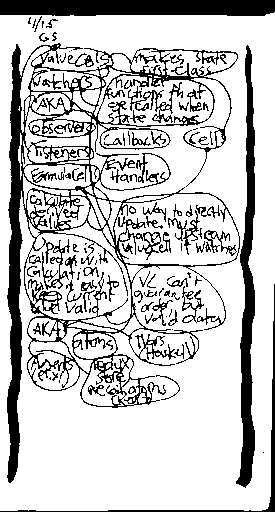 4/15
GS
ValueCells
makes state
first-class
Watchers
handler
functions that
get called when
state changes
AKA
Observers
Callbacks
Cell
Listeners
Event
Handlers
FormulaCell
Calculate
derived
values
no way to directly
update. must
change upstream
ValueCell it watches
Update is
called with
calculation,
makes it easy to
keep current
and valid
VC can't
guarantee
order, but
valid
AKA
atoms
TVars
Haskell
Agents
Elixir
Redux
store